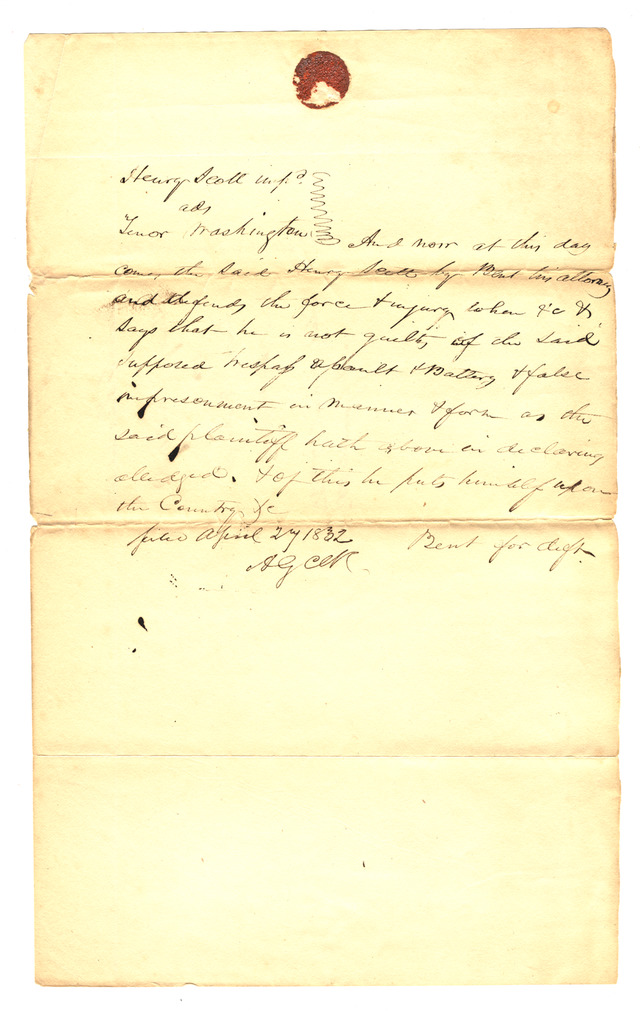 Henry Scott impd.
ads
Tenor Washington And now at this day
comes the said Henry Scott by Bent his attorney
and defends the force & injury when &c &
says that he is not guilty of the said
supposed trespass assault & Battery & false
imprisonment in manner & form as the
said plaintiff hath above in declaring
aledged. & of this he puts himself upon
the Country &c
filed April 27 1832 Bent for deft
AG Clk